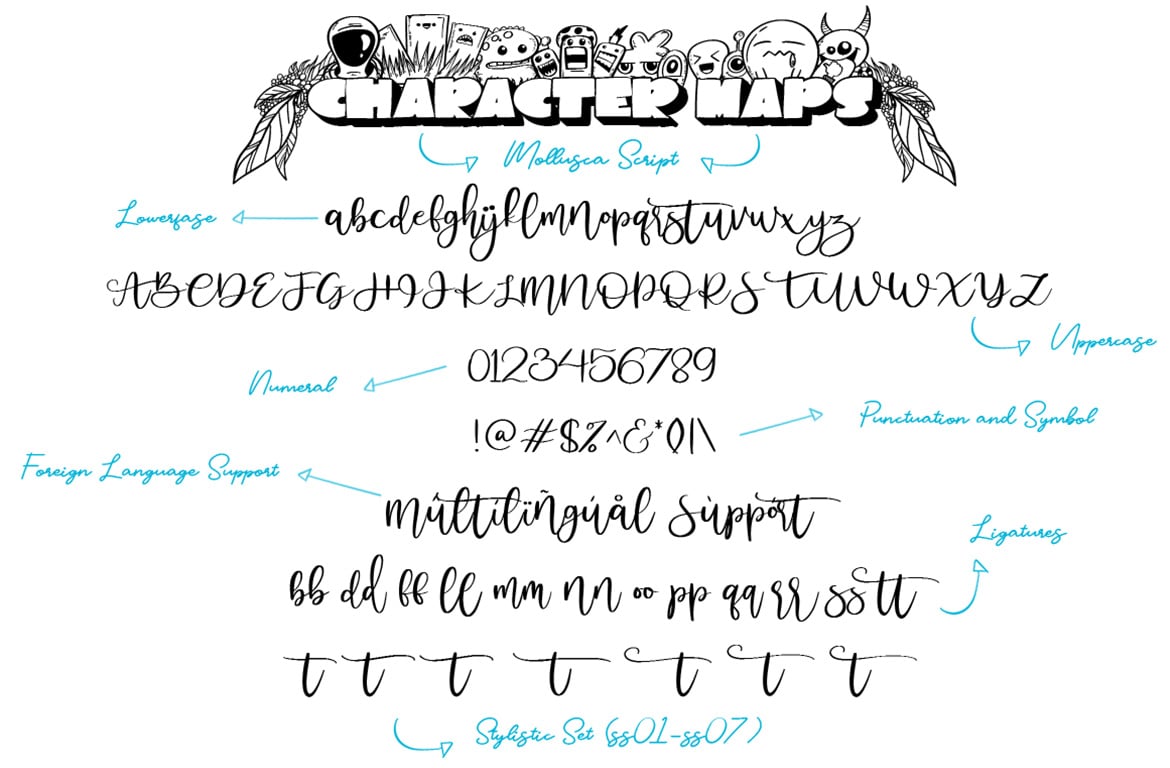 CHARACTER MAPS
Mollusca Script
Lowerfase
abcdefghijklmnopqrstuvwxyz
ABCDEFGHIJKLMNOPQRSTUVWXYZ
Uppercase
0123456789
Numeral
!@#$%^&*()|\
Punctuation and Symbol
Foreign Language Support
múltílïñgúål sùppórt
Ligatures
bb dd ff ll mm nn oo pp qq rr ss tt
t t t t t t t
Stylistic Set (ss01-ss07)